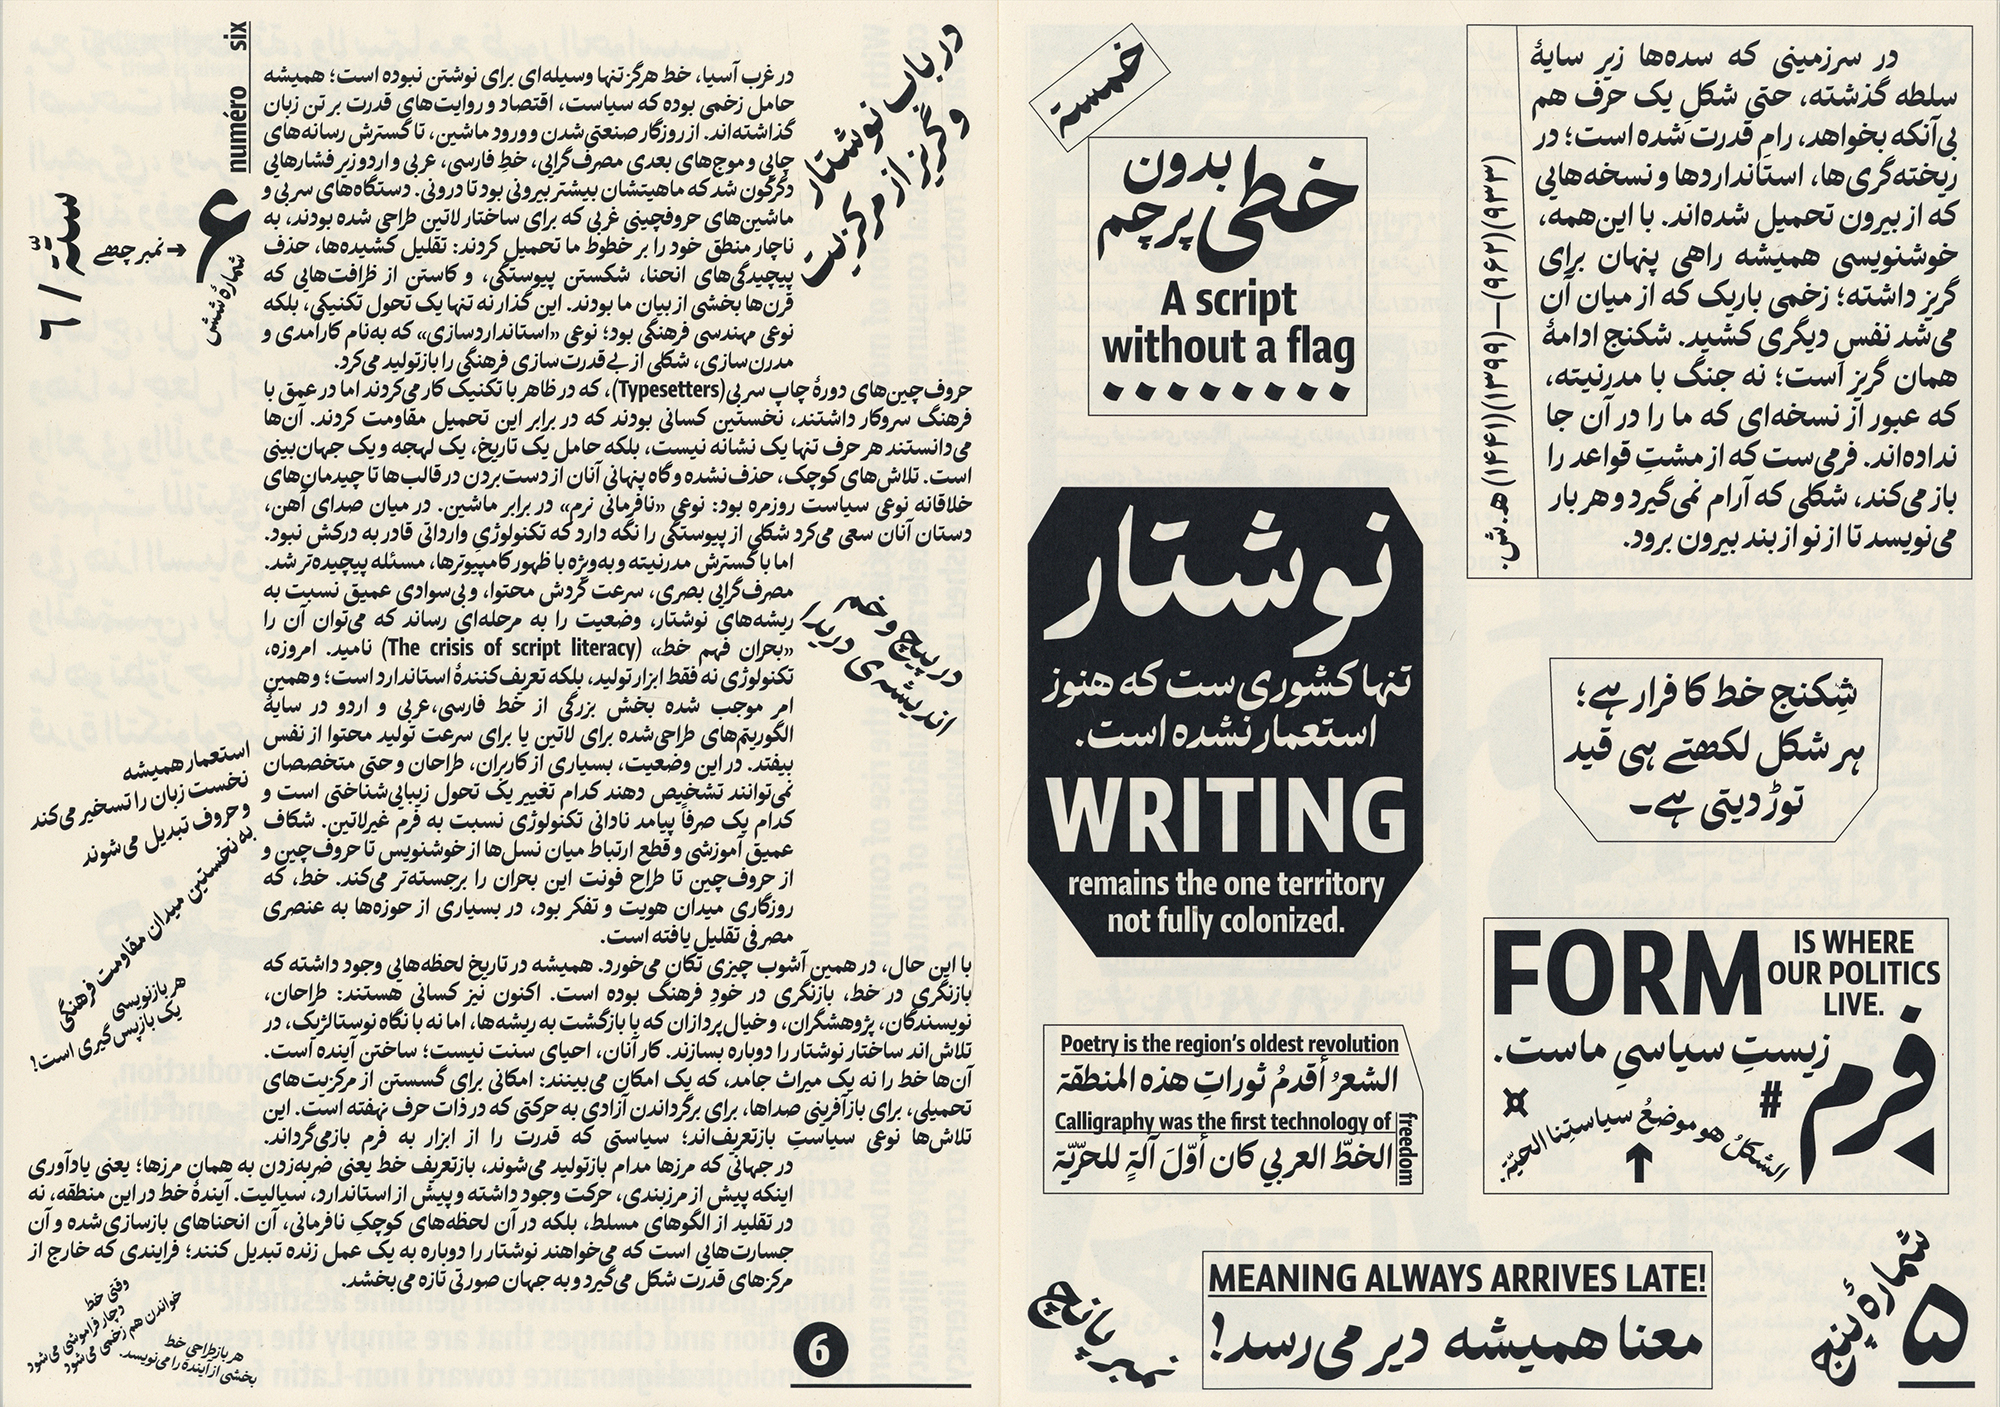 در سرزمینی که سده‌ها زیر سایهٔ
سلطه گذشته، حتی شکلِ یک حرف هم
بی‌آنکه بخواهد، رامِ قدرت شده است؛ در
ریخته‌گری‌ها، استانداردها و نسخه‌هایی
که از بیرون تحمیل شده‌اند. با این‌همه،
خوشنویسی همیشه راهی پنهان برای
گریز داشته؛ زخمی باریک که از میان آن
می‌شد نفس دیگری کشید. شکنج ادامهٔ
همان گریز است؛ نه جنگ با مدرنیته،
که عبور از نسخه‌ای که ما را در آن جا
نداده‌اند. فرمی‌ست که از مشتِ قواعد را
باز می‌کند، شکلی که آرام نمی‌گیرد و هر بار
می‌نویسد تا از نو از بند بیرون برود.
(۹۳۳)(۹۶۲)—(۱۳۹۹)(۱۴۴۱) ه‍.ش.
خمسته
خطی بدون
پرچم
A script
without a flag
نوشتار
تنها کشوری‌ست که هنوز
استعمار نشده است.
WRITING
remains the one territory
not fully colonized.
شِکنج خط کا فرار ہے؛
ہر شکل لکھتے ہی قید
توڑ دیتی ہے۔
FORM
IS WHERE
OUR POLITICS
LIVE.
فرم
زیستِ سیاسیِ ماست.
#
الشكلُ هو موضعُ سياستِنا الحيّة.
Poetry is the region's oldest revolution
الشعرُ أقدمُ ثوراتِ هذه المنطقة
Calligraphy was the first technology of
freedom
الخطّ العربي كان أوّلَ آلةٍ للحرّيّة
MEANING ALWAYS ARRIVES LATE!
معنا همیشه دیر می‌رسد!
نمبر پانچ
شمارهٔ پنج
۵
در باب نوشتار
و گریز از مرکزیت
در غرب آسیا، خط هرگز تنها وسیله‌ای برای نوشتن نبوده است؛ همیشه
حامل زخمی بوده که سیاست، اقتصاد و روایت‌های قدرت بر تن زبان
گذاشته‌اند. از روزگار صنعتی‌شدن و ورود ماشین، تا گسترش رسانه‌های
چاپی و موج‌های بعدی مصرف‌گرایی، خطِ فارسی، عربی و اردو زیر فشارهایی
دگرگون شد که ماهیتشان بیشتر بیرونی بود تا درونی. دستگاه‌های سربی و
ماشین‌های حروفچینی غربی که برای ساختار لاتین طراحی شده بودند، به
ناچار منطق خود را بر خطوط ما تحمیل کردند: تقلیل کشیده‌ها، حذف
پیچیدگی‌های انحنا، شکستن پیوستگی، و کاستن از ظرافت‌هایی که
قرن‌ها بخشی از بیان ما بودند. این گذار نه تنها یک تحول تکنیکی، بلکه
نوعی مهندسی فرهنگی بود؛ نوعی «استانداردسازی» که به‌نام کارآمدی و
مدرن‌سازی، شکلی از بی‌قدرت‌سازی فرهنگی را بازتولید می‌کرد.
حروف‌چین‌های دورهٔ چاپ سربی (Typesetters)، که در ظاهر با تکنیک کار می‌کردند اما در عمق با
فرهنگ سروکار داشتند، نخستین کسانی بودند که در برابر این تحمیل مقاومت کردند. آن‌ها
می‌دانستند هر حرف تنها یک نشانه نیست، بلکه حامل یک تاریخ، یک لهجه و یک جهان‌بینی
است. تلاش‌های کوچک، حذف‌نشده و گاه پنهانی آنان از دست‌بردن در قالب‌ها تا چیدمان‌های
خلاقانه نوعی سیاست روزمره بود: نوعی «نافرمانی نرم» در برابر ماشین. در میان صدای آهن،
دستان آنان سعی می‌کرد شکلی از پیوستگی را نگه دارد که تکنولوژیِ وارداتی قادر به درکش نبود.
اما با گسترش مدرنیته و به‌ویژه با ظهور کامپیوترها، مسئله پیچیده‌تر شد.
مصرف‌گرایی بصری، سرعت گردش محتوا، و بی‌سوادی عمیق نسبت به
ریشه‌های نوشتار، وضعیت را به مرحله‌ای رساند که می‌توان آن را
«بحران فهم خط» (The crisis of script literacy) نامید. امروزه،
تکنولوژی نه فقط ابزار تولید، بلکه تعریف‌کنندهٔ استاندارد است؛ و همین
امر موجب شده بخش بزرگی از خط فارسی،عربی و اردو در سایهٔ
الگوریتم‌های طراحی‌شده برای لاتین یا برای سرعت تولید محتوا از نفس
بیفتد. در این وضعیت، بسیاری از کاربران، طراحان و حتی متخصصان
نمی‌توانند تشخیص دهند کدام تغییر یک تحول زیبایی‌شناختی است و
کدام یک صرفاً پیامد نادانی تکنولوژی نسبت به فرم غیرلاتین. شکاف
عمیق آموزشی و قطع ارتباط میان نسل‌ها از خوشنویس تا حروف‌چین و
از حروف‌چین تا طراح فونت این بحران را برجسته‌تر می‌کند. خط، که
روزگاری میدان هویت و تفکر بود، در بسیاری از حوزه‌ها به عنصری
مصرفی تقلیل یافته است.
در پیچ و خم
اندیشه‌ی دریدا
با این حال، در همین آشوب چیزی تکان می‌خورد. همیشه در تاریخ لحظه‌هایی وجود داشته که
بازنگری در خط، بازنگری در خودِ فرهنگ بوده است. اکنون نیز کسانی هستند: طراحان،
نویسندگان، پژوهشگران، و خیال‌پردازان که با بازگشت به ریشه‌ها، اما نه با نگاه نوستالژیک، در
تلاش‌اند ساختار نوشتار را دوباره بسازند. کار آنان، احیای سنت نیست؛ ساختن آینده است.
آن‌ها خط را نه یک میراث جامد، که یک امکان می‌بینند: امکانی برای گسستن از مرکزیت‌های
تحمیلی، برای بازآفرینی صداها، برای برگرداندن آزادی به حرکتی که در ذات حرف نهفته است. این
تلاش‌ها نوعی سیاستِ بازتعریف‌اند؛ سیاستی که قدرت را از ابزار به فرم بازمی‌گرداند.
در جهانی که مرزها مدام بازتولید می‌شوند، بازتعریف خط یعنی ضربه‌زدن به همان مرزها؛ یعنی یادآوری
اینکه پیش از مرزبندی، حرکت وجود داشته و پیش از استاندارد، سیالیت. آیندهٔ خط در این منطقه، نه
در تقلید از الگوهای مسلط، بلکه در آن لحظه‌های کوچکِ نافرمانی، آن انحناهای بازسازی‌شده و آن
جسارت‌هایی است که می‌خواهند نوشتار را دوباره به یک عمل زنده تبدیل کنند؛ فرایندی که خارج از
مرکزهای قدرت شکل می‌گیرد و به جهان صورتی تازه می‌بخشد.
numéro six
۶
شمارهٔ شش
نمبر چھے
ستّة / ٦
استعمار همیشه
نخست زبان را تسخیر می‌کند
و حروف تبدیل می‌شوند
به نخستین میدان مقاومت فرهنگی
هر بازنویسی
یک بازپس‌گیری است!
وقتی خط
دچار فراموشی می‌شود
خواندن هم زخمی می‌شود
هر بازطراحی خط
بخشی از آینده را می‌نویسد.
6